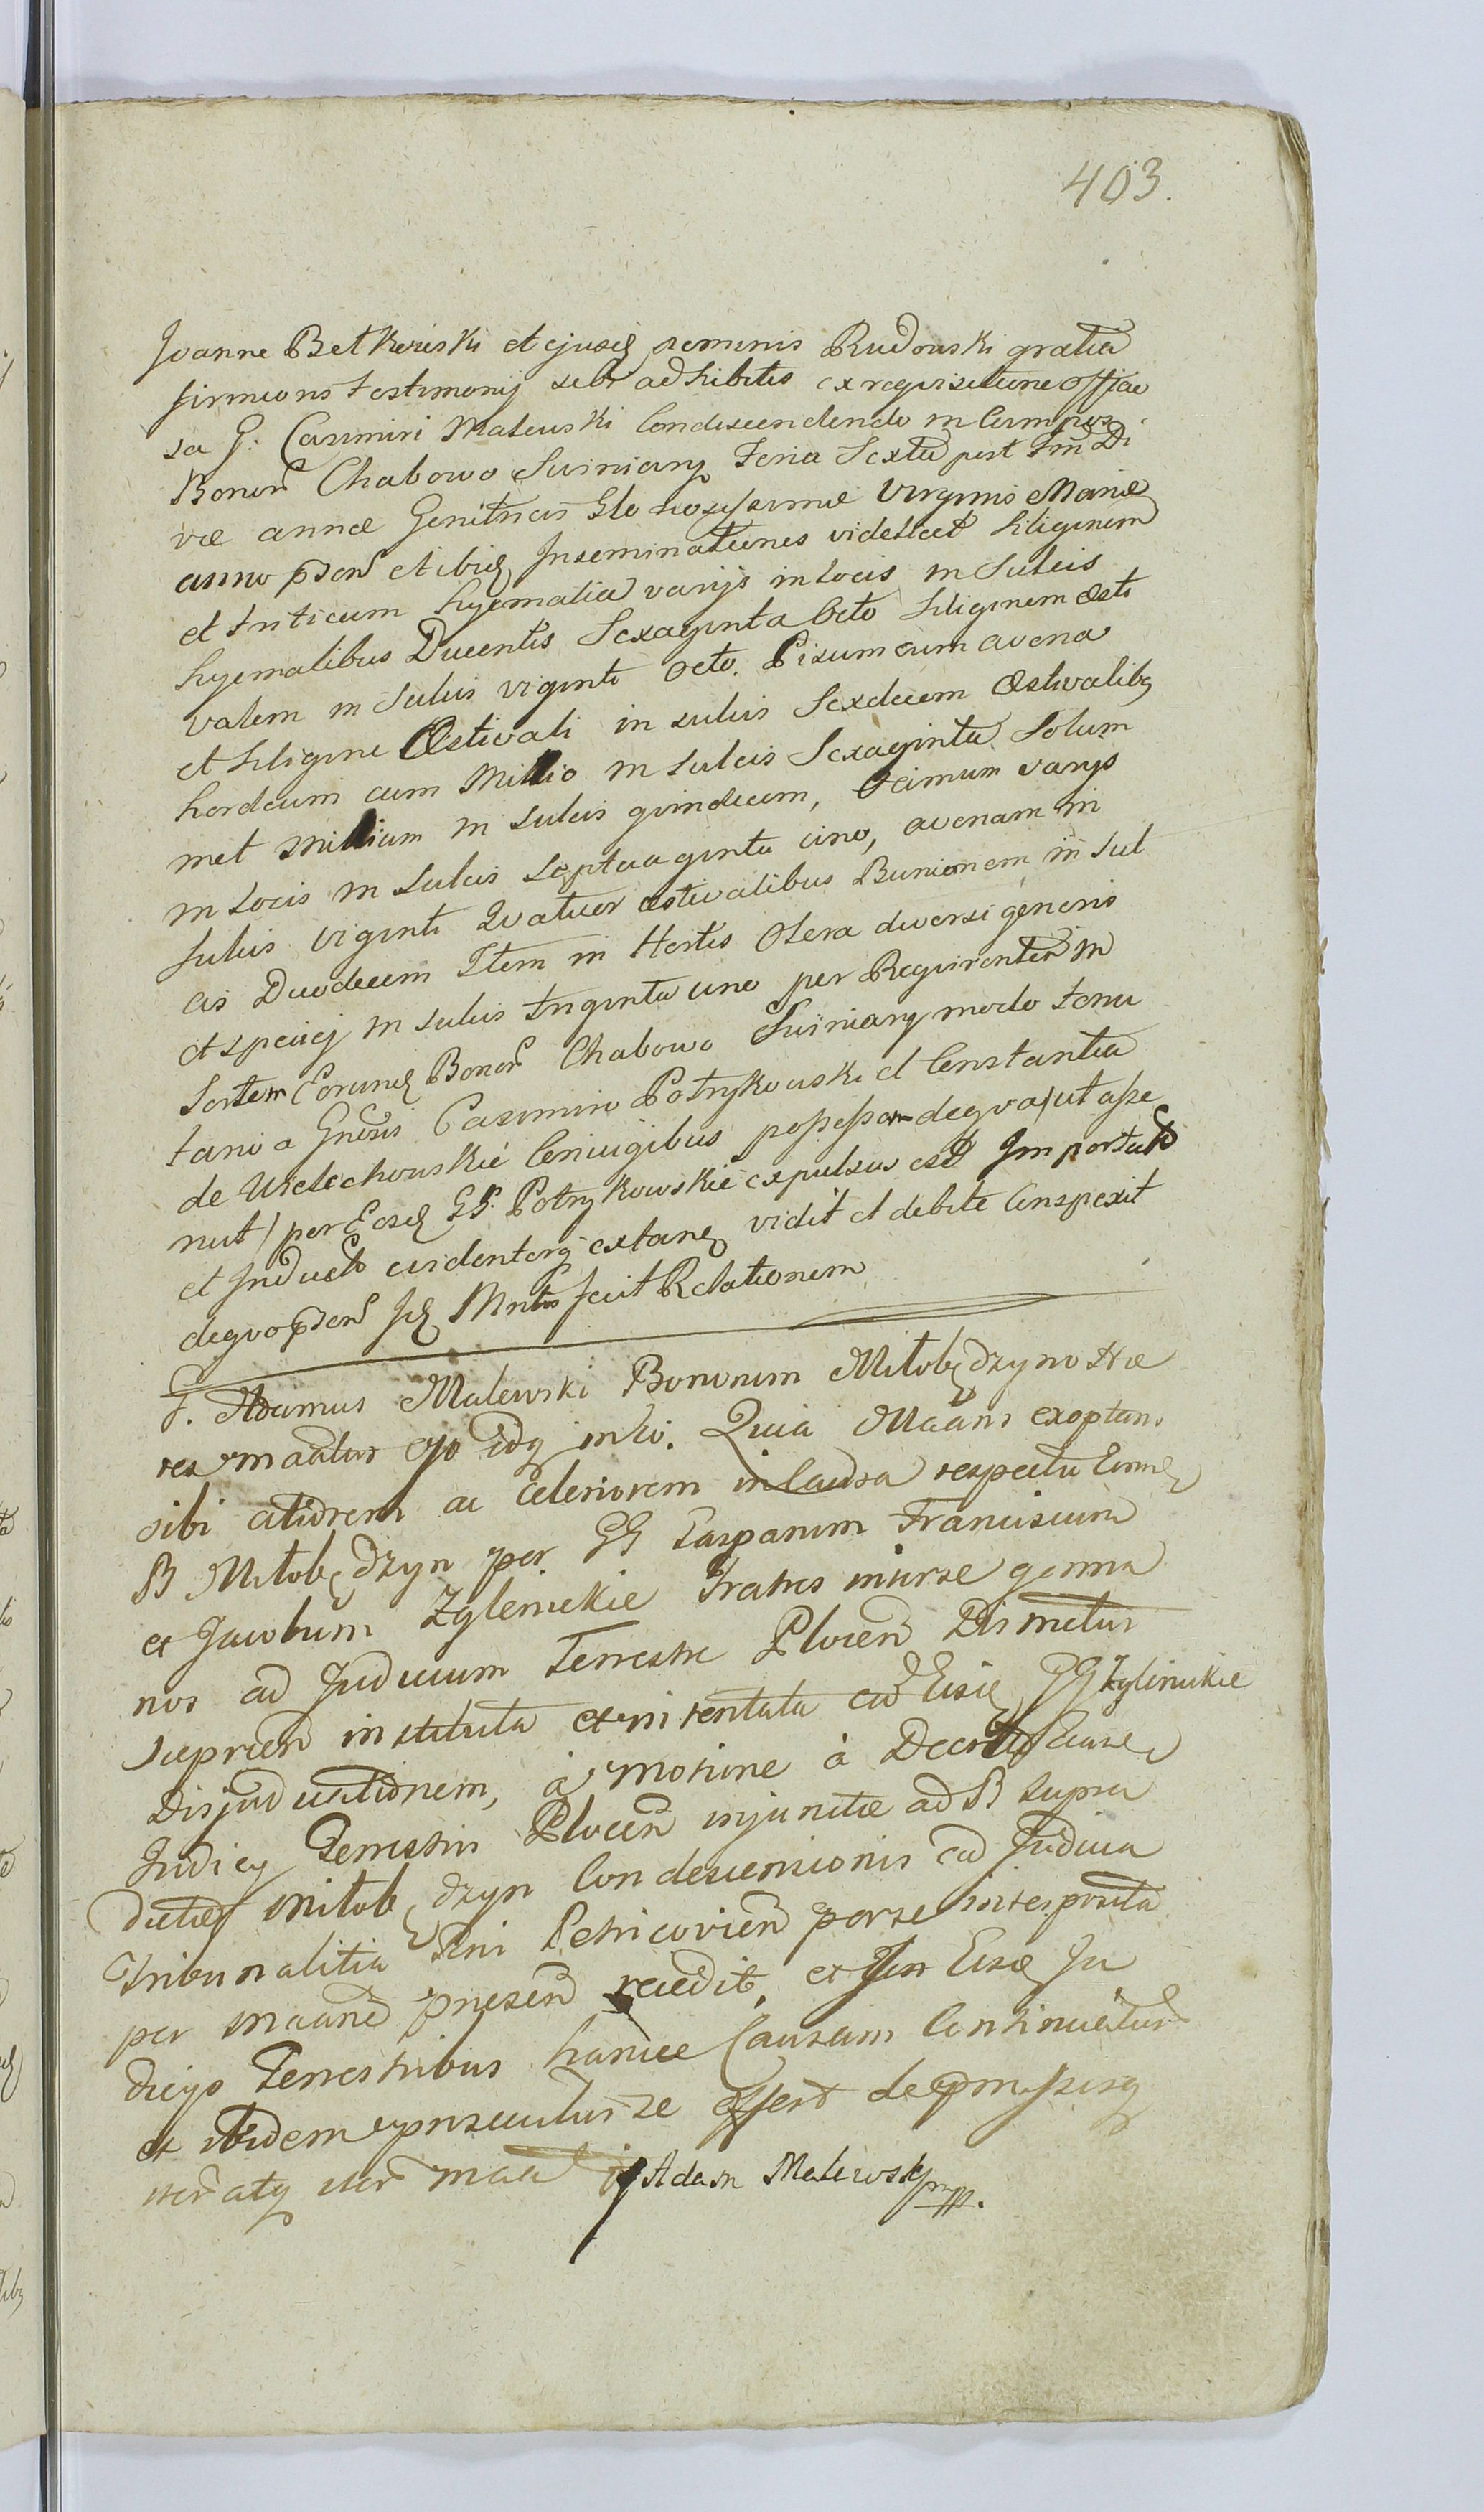 403.
Joanne Betkowski et ejusdꝫ nominis Rudowski gratia
firmioris testimonij sibi adhibitis ex requisitione officio
sa G. Casimiri Malewski Condescendendo in Campos
Bonorꝫ Chabowo Suiniary Feria Sexta post Fm Di
væ annæ Genitricis Glo riosissimæ Virginis Mariæ
anno præsen et ibidꝫ Inseminationes videlicet Siliginem
et triticum hyemalia varijs in locis in Sulcis
hyemalibus Ducentis Sexaginta Octo Siliginem Æsti
valem in Sulcis viginti Octo. Pisum cum avena
et Siligine Æstivali in sulcis Sexdecem Æstivalibꝫ
hordeum cum Millio in Sulcis Sexaginta Solum
met Millium in sulcis quindecem, Ocimum varijs
in Locis in Sulcis Septuaginta uno, avenam in
Sulcis Viginti Quatuor æstivalibus Bunionem in Sul
cis Duodecem Item in Hortis Olera diversi generis
et speciej in sulcis triginta uno per Requirentem in
Sortem Eorundꝫ Bonor Chabowo Suiniary modo tenu
tario a Gnosis Casimiro Potrykowski et Constantia
de Wielechowskie Coniugibus possessam de qva /ut asse
ruit/ per Eosdꝫ GG. Potrykowskie expulsus est Importato
et Inducto evidenterqꝫ extanꝫ vidit et debite Conspexit
de quo præsen Idꝫ Mntis fecit Relationem
G. Adamus Malewski Bonorum Miłobędzyno Hæ
res maatur qo idqꝫ in Eo. Quia Maans exoptans
sibi celeriorem in Causa respectu Eorundꝫ
B Miłobędzyn per GG Casparum Franciscum
et Jacobum Zglenickie Fratres inter se germa
nos ad Judicium Terrestre Plocen Districtus
Sieprcen instituta et intentata ad Eisdꝫ GG Zglinickie
Disjudicationem, à motione à Decreto Eiusdꝫ
Judicy Terrestris Plocen injunctæ ad B supra
dictæ Miłobędzyn Condescensionis ad Judicia
Tribunalitia Rni Petricovien per se interposita
per maanem præsen recedit, et in Eisdꝫ Ju
dicys Terrestribus hance Causam Continuatur
et ibidem prosecuturus se offert de præmissisqꝫ
iter atqꝫ iter maa Adam Malewski mpp.